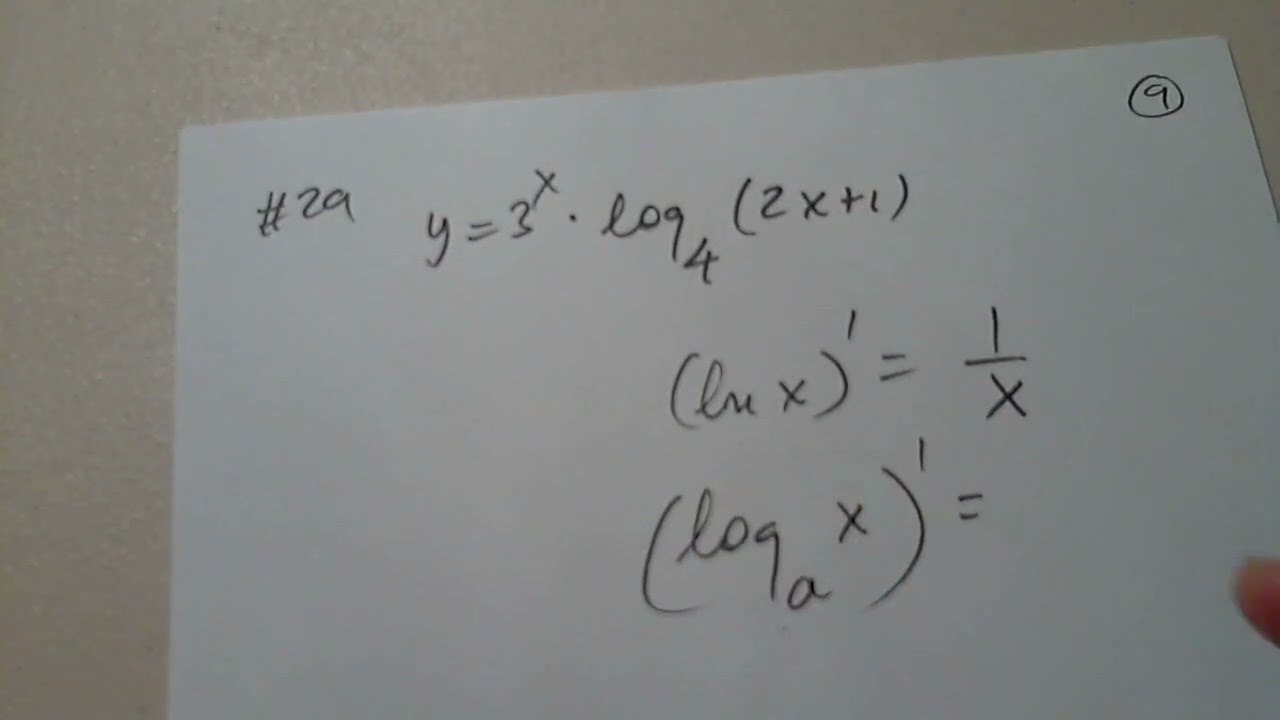 9
#29 y = 3^x · log_4 (2x+1)
(ln x)' = 1/x
(log_a x)' =